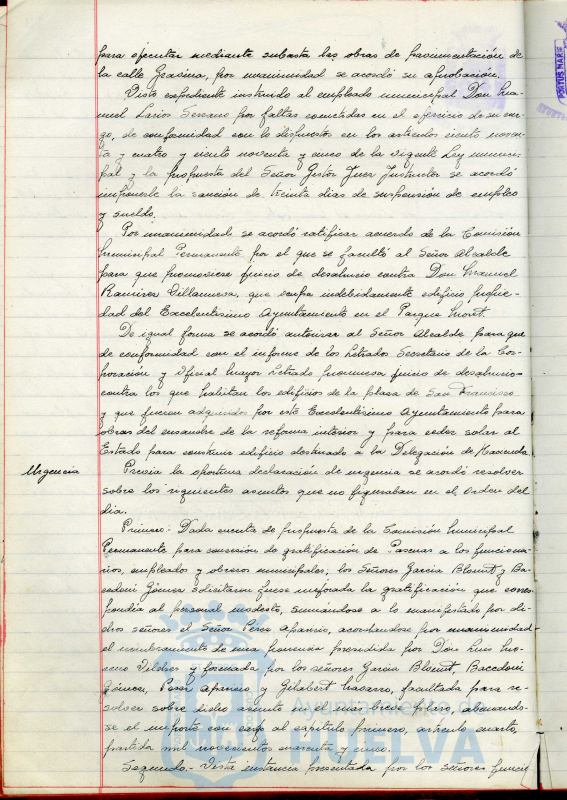 para ejecutar mediante subasta las obras de pavimentación de
la calle Gravina, por unanimidad se acordó su aprobación.
Visto expediente instruido al empleado municipal Don Ma-
nuel Larios Serrano por faltas cometidas en el ejercicio de su car-
go, de conformidad con lo dispuesto en los artículos ciento noven-
ta y cuatro y ciento noventa y cinco de la vigente Ley munici-
pal y la propuesta del Señor Gestor Juez Instructor se acordó
imponerle la sanción de treinta dias de suspensión de empleo
y sueldo.
Por unanimidad se acordó ratificar acuerdo de la Comisión
Municipal Permanente por el que se facultó al Señor Alcalde
para que promoviese juicio de desahucio contra Don Manuel
Ramirez Villanueva, que ocupa indebidamente edificio propie-
dad del Excelentísimo Ayuntamiento en el Parque Moret.
De igual forma se acordó autorizar al Señor Alcalde para que
de conformidad con el informe de los Letrados Secretario de la Cor-
poración y Oficial Mayor Letrado promueva juicio de desahucio
contra los que habitan los edificios de la plaza de San Francisco
y que fueron adquiridos por este Excelentísimo Ayuntamiento para
obras del ensanche de la reforma interior y para ceder solar al
Estado para construir edificio destinado a la Delegación de Hacienda
Urgencia
Previa la oportuna declaración de urgencia se acordó resolver
sobre los siguientes asuntos que no figuraban en el orden del
dia.
Primero.- Dada cuenta de propuesta de la Comisión Municipal
Permanente para concesión de gratificación de Pascuas a los funciona-
rios, empleados y obreros municipales, los Señores Garcia Blount y Ba-
cedoni Gómez solicitaron fuese mejorada la gratificación que corres-
pondía al personal modesto, sumándose a lo manifestado por di-
chos señores el Señor Pérez Aparicio, acordandose por unanimidad
el nombramiento de una ponencia presidida por Don Luis Mo-
reno Vilches y formada por los señores Garcia Blount Bacedoni
Gómez, Pérez Aparicio y Gilabert Navarro, facultada para re-
solver sobre dicho asunto en el mas breve plazo, abonando-
se el importe con cargo al capitulo primero, articulo cuarto,
partida mil novecientos cuarenta y cinco.
Segundo.- Vista instancia presentada por los señores funcio
Ayuntamiento de
HUELVA